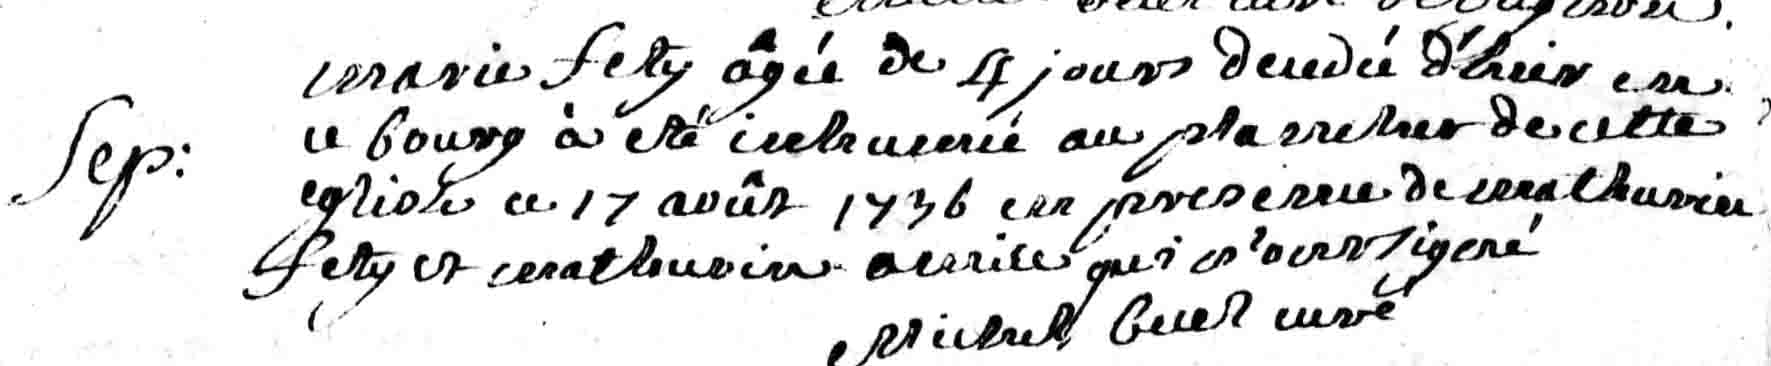 marie fety âgée de 4 jours décédé d'hier en
Sep: ce bourg à été inhumé au placitre de cette
eglise ce 17 août 1736 en presence de mathurin
fety et mathurin qui n'ont signé
Michel curé